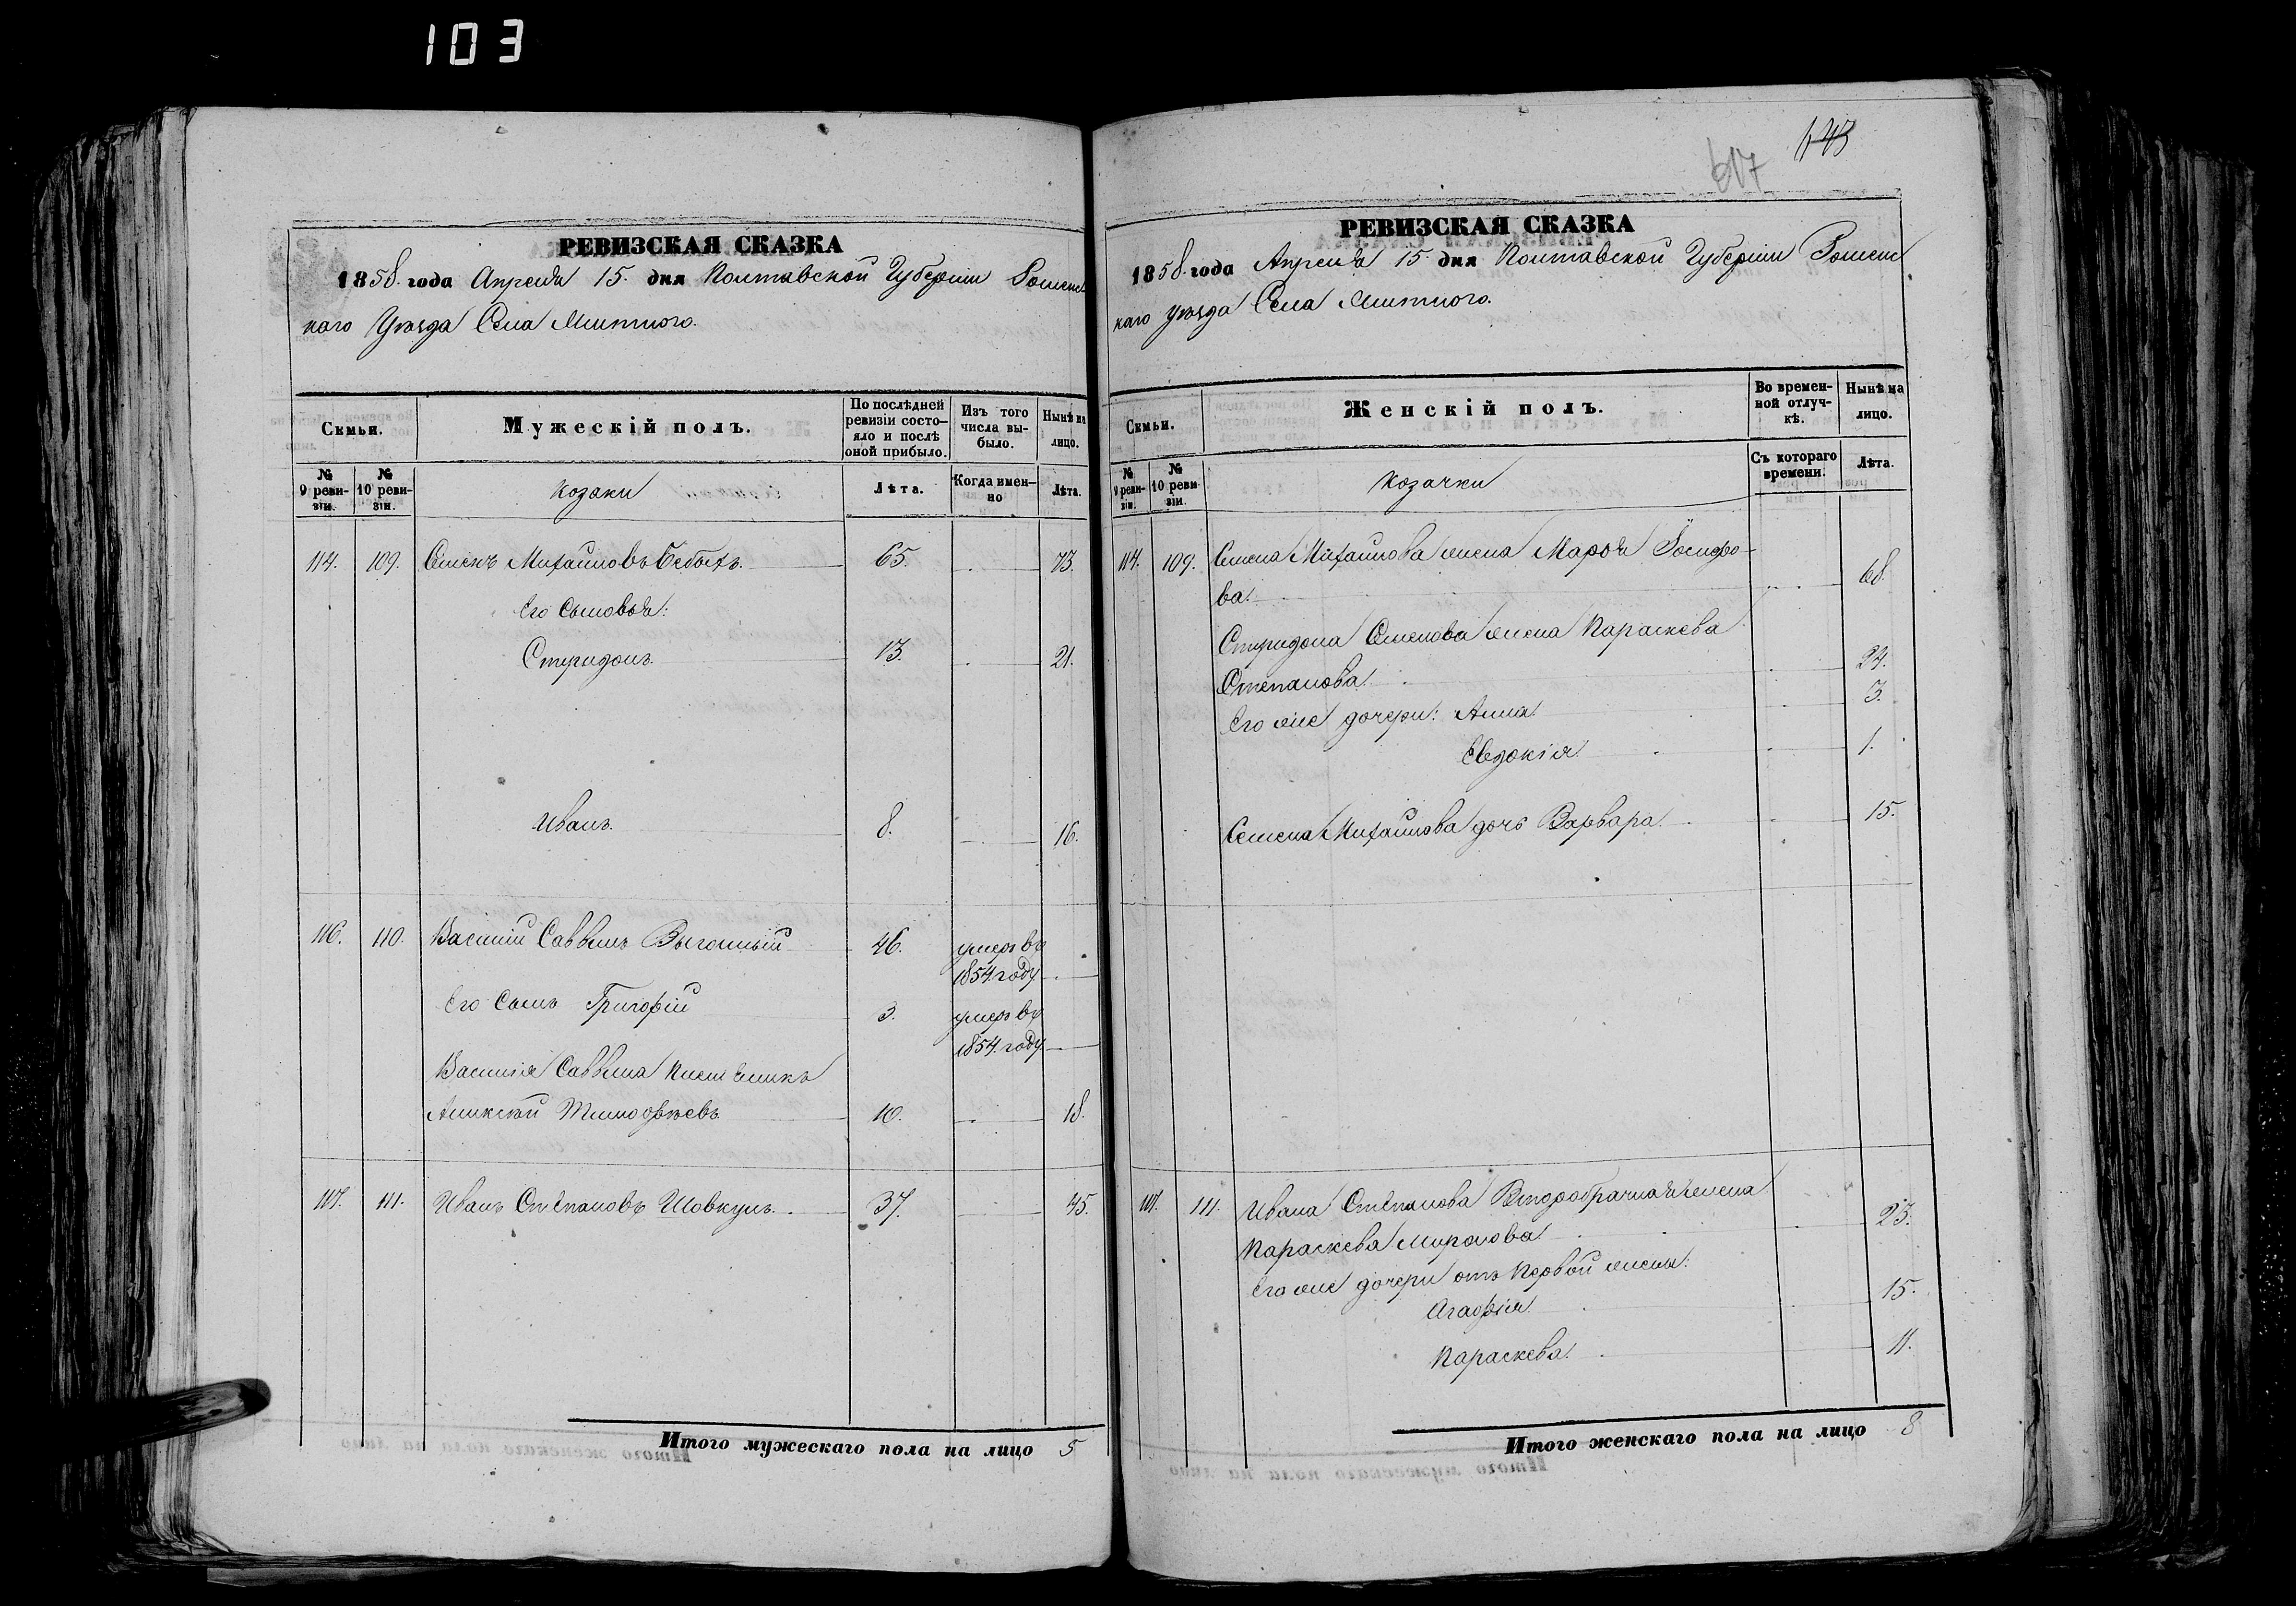 103
РЕВИЗСКАЯ СКАЗКА
1858. года Апреля 15. дня Полтавской Губерніи Роменс
каго Уѣзда Села
Семьи.
Мужескій полъ.
По послѣдней ревизіи состо- яло и послѣ оной прибыло.
Изъ того числа вы- было.
Нынѣ на лицо.
№ 9 реви- зіи.
№ 10 реви- зіи.
Козаки
Лѣта.
Когда имен- но
Лѣта.
114. 109. Семенъ Михайловъ 65. 73.
Его Сыновья:
Спиридонъ. 13. 21.
Иванъ. 8. 16.
116. 110. Василій Саввинъ Выгонный 46. умеръ въ
1854. году
Его Сынъ Григорій 3. умеръ въ
1854. году
Василія Саввина Племѣникъ
Аликсѣй Тимофѣевъ 10. 18.
117. 111. Иванъ Степановъ Шовкунъ. 37. 45.
Итого мужескаго пола на лицо 5
643
617
РЕВИЗСКАЯ СКАЗКА
1858. года Апреля 15. дня Полтавской Губерніи Роменс
каго Уѣзда Села
Семьи.
Женскій полъ.
Во времен- ной отлуч- кѣ.
Нынѣ на лицо.
№ 9 реви- зіи.
№ 10 реви- зіи.
Козачки
Съ котораго времени.
Лѣта.
114. 109. Семена Михайлова жена Марфа Іосифо-
ва. 68.
Спиридона Семенова жена Параскева
Степанова 24.
Его же дочери: Анна. 3.
Евдокія. 1.
Семена Михайлова дочь Варвара. 15.
117. 111. Ивана Степанова Второбрачная жена
Параскева Миронова 23.
Его же дочери отъ Первой жены:
Агафія 15.
Параскева. 11.
Итого женскаго пола на лицо 8